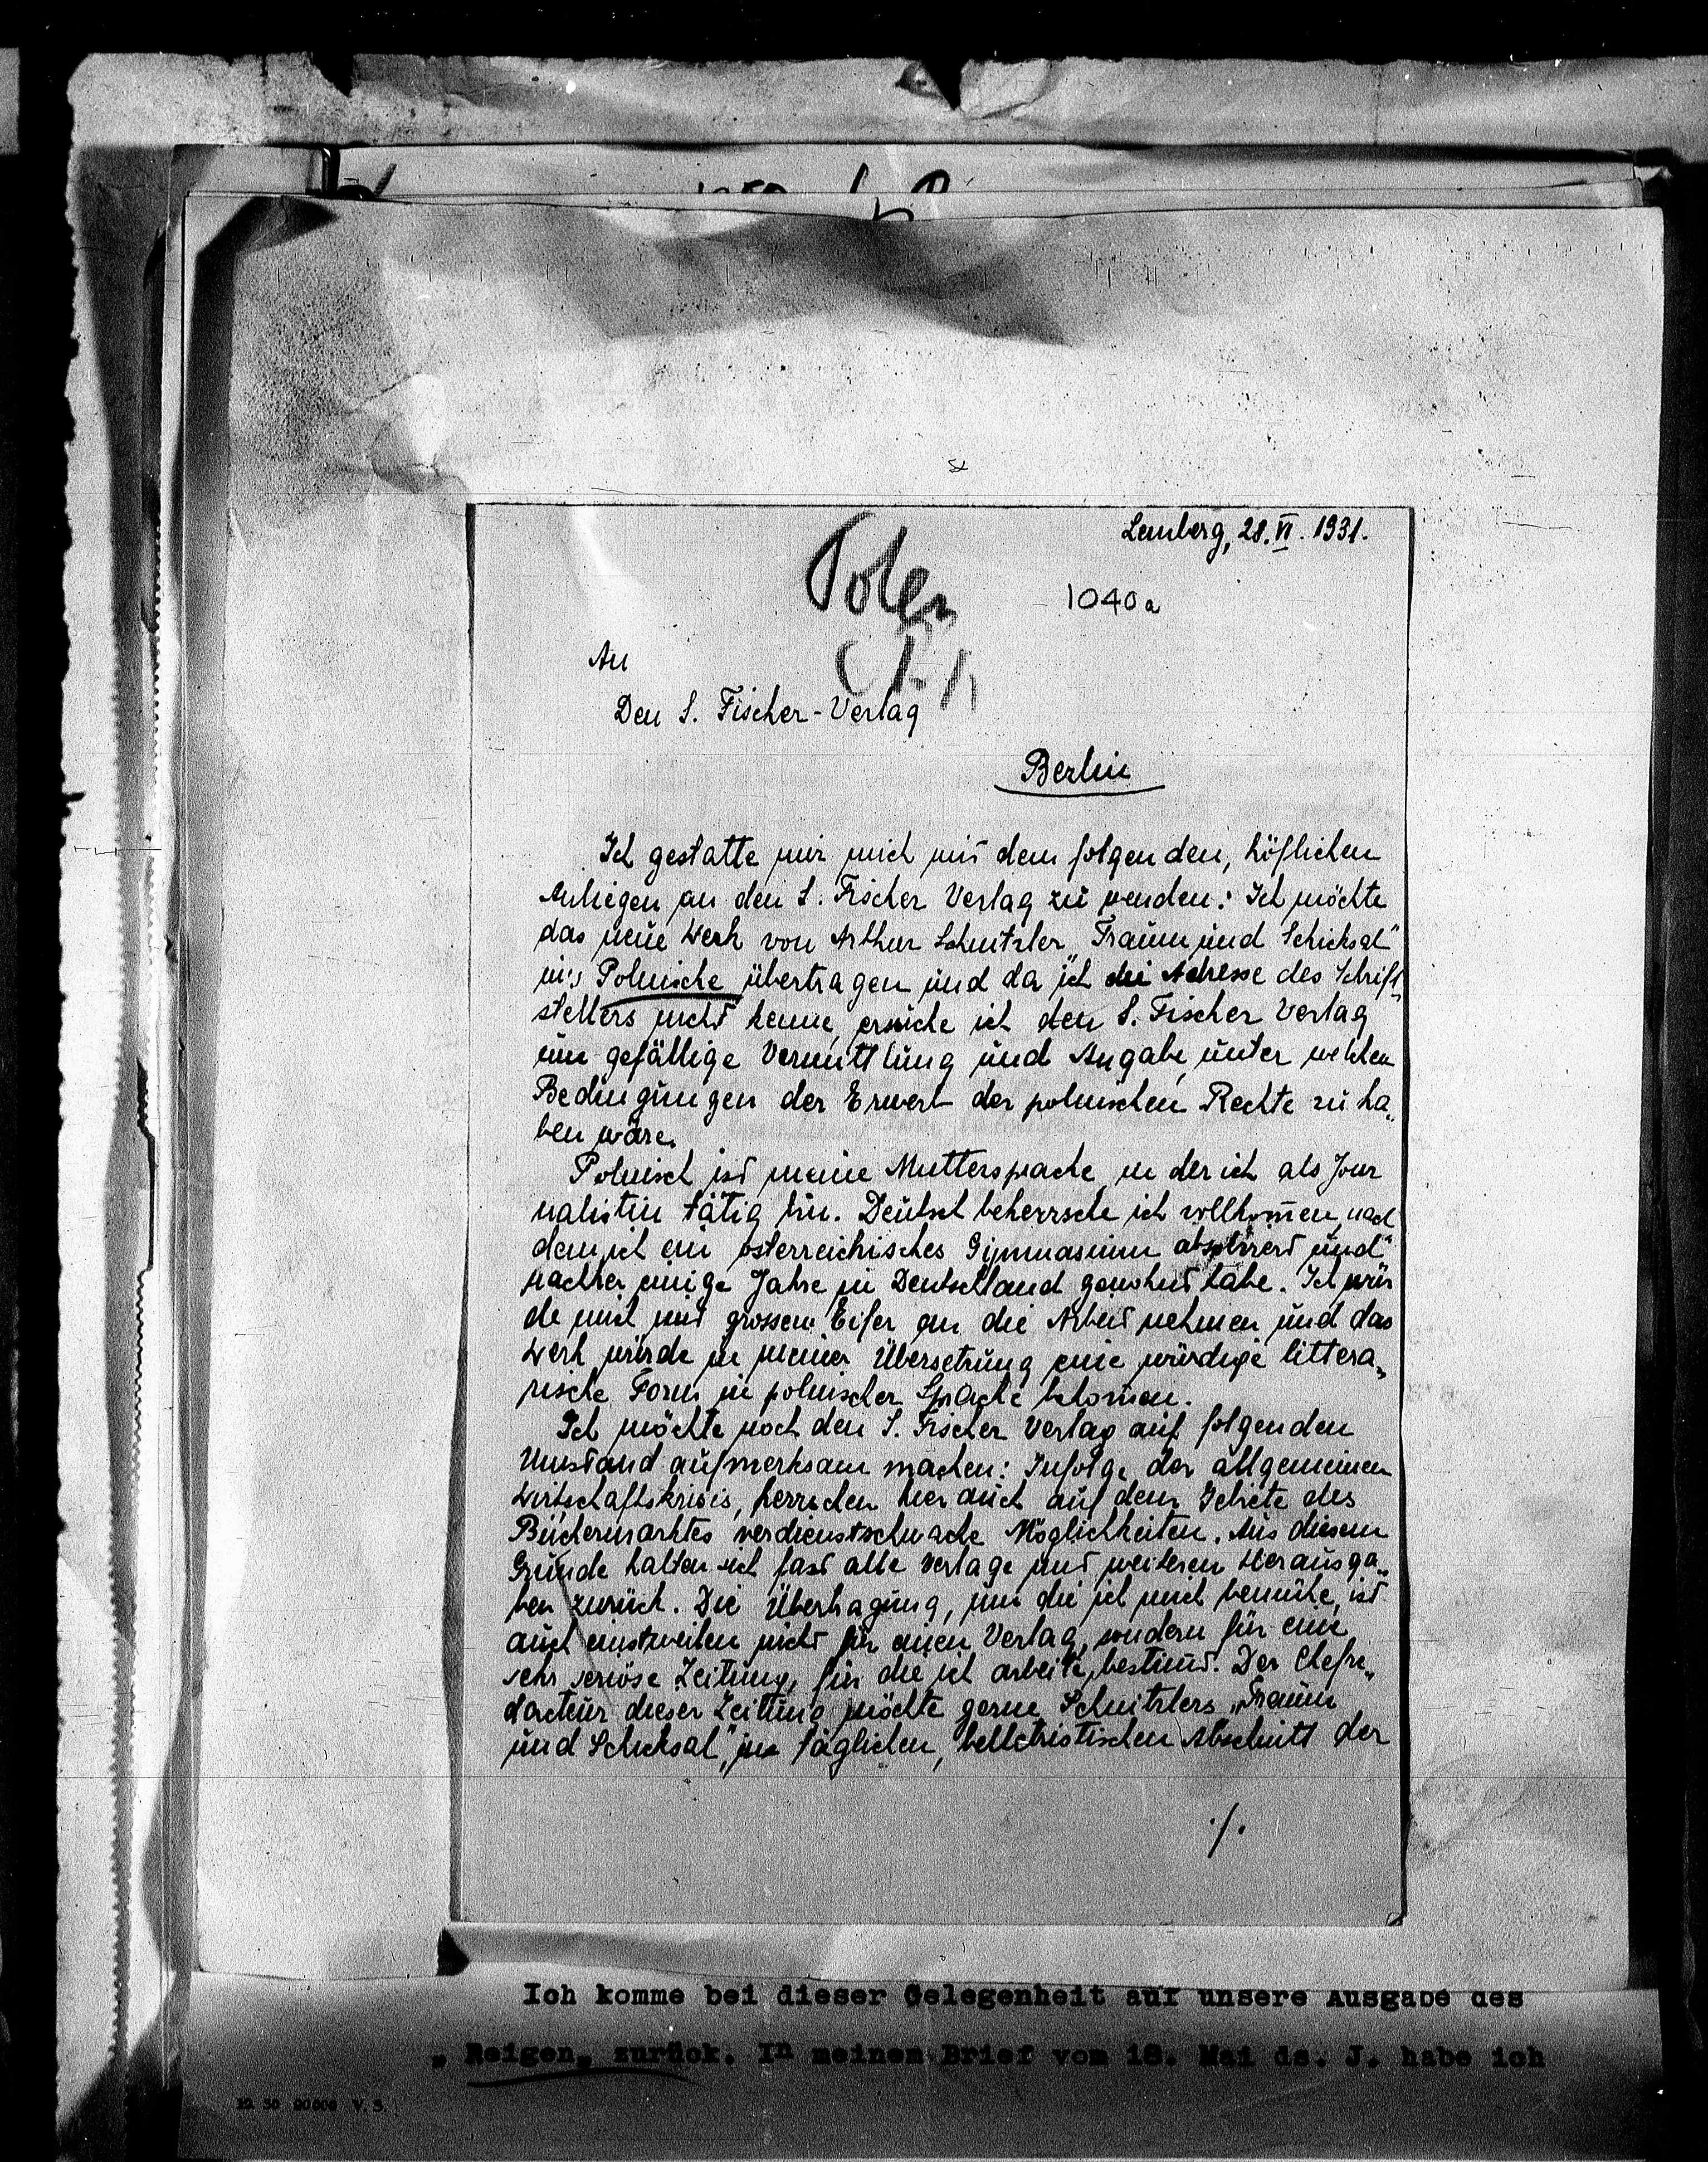 Lemberg, 28. VI. 1931.
Polen
1040a
An
Den S. Fischer-Verlag
Berlin
Ich gestatte mir mich mit dem folgenden, höflichen
Anliegen an den S. Fischer Verlag zu wenden: Ich möchte
das neue Werk von Arthur Schnitzler „Traum und Schicksal"
ins Polnische übertragen und da ich die Adresse des Schrift„
stellers nicht kenne, ersuche ich den S. Fischer Verlag
um gefällige Vermittlung und Angabe, unter welchen
Bedingungen der Erwerb der polnischen Rechte zu ha„
ben wäre.
Polnisch ist meine Muttersprache, in der ich als Jour
nalistin tätig bin. Deutsch beherrsche ich vollkom̅en, nach
dem ich ein österreichisches Gymnasium absolviert und
nachher einige Jahre in Deutschland gewohnt habe. Ich wür
de mich mit grossem Eifer an die Arbeit nehmen und das
Werk würde in meiner Übersetzung eine würdige littera„
rische Form in polnischer Sprache bekom̅en.
Ich möchte noch den S. Fischer Verlag auf folgenden
Umstand aufmerksam machen: Infolge der allgemeinen
Wirtschaftskrisis, herrschen hier auch auf dem Gebiete des
Büchermarktes verdienstschwache Möglichkeiten. Aus diesem
Grunde halten sich fast alle Verlage mit weiteren Herausga„
ben zurück. Die Übertragung, um die ich mich bemühe, ist
auch einstweilen nicht für einen Verlag, sondern für eine
sehr seriöse Zeitung, für die ich arbeite, bestimmt. Der Chefre„
dacteur dieser Zeitung möchte gerne Schnitzlers „Traum
und Schicksal" im täglichen, belletristischen Abschnitt der
./.
Ich komme bei dieser Gelegenheit auf unsere Ausgabe des
„ Reigen„ zurück. In meinem Brief vom 18. Mai ds. J. habe ich
V. S.